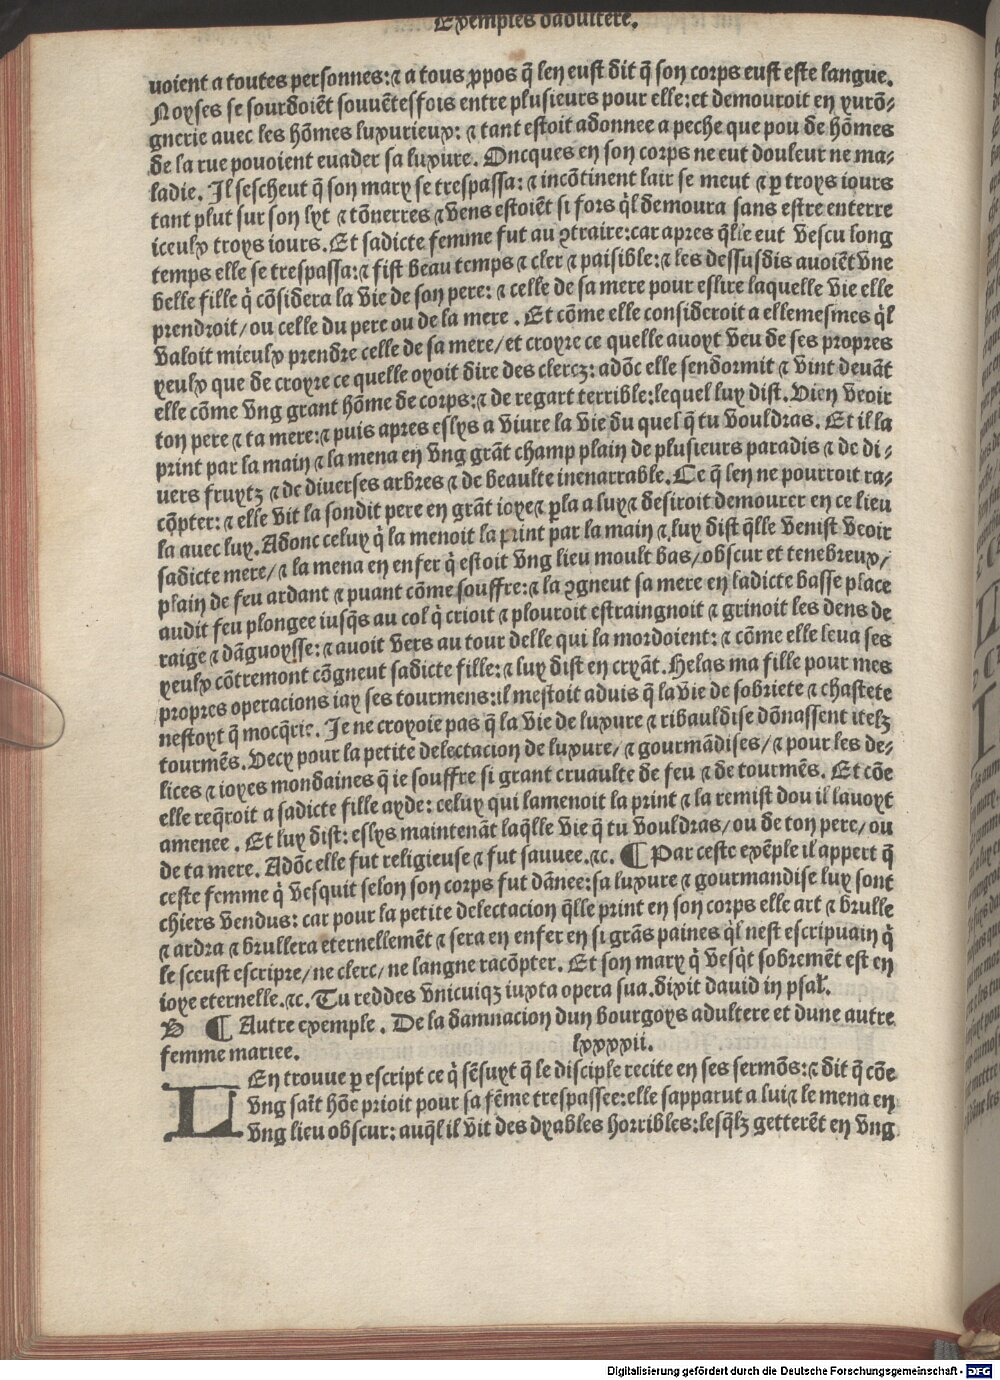 Exemples dadultere.
voient a toutes personnes: ⁊ a tous ꝓpos q̃ len eust dit q̃ son corps eust este langue.
Noyses se sourdoiẽt souuẽtesfois entre plusieurs pour elle: et demouroit en yurõ⸗
gnerie auec les hõmes luxurieux: ⁊ tant estoit adonnee a peche que pou de hõmes
de la rue pouoient euader sa luxure. Oncques en son corps ne eut douleur ne ma⸗
ladie. Il sescheut q̃ son mary se trespassa: ⁊ incõtinent lair se meut ⁊ ꝑ troys iours
tant plut sur son lyt ⁊ tõnerres ⁊ vens estoiẽt si fors q̃l demoura sans estre enterre
iceulx troys iours. Et sadicte femme fut au ꝯtraire: car apres q̃lle eut vescu long
temps elle se trespassa: ⁊ fist beau temps ⁊ cler ⁊ paisible: ⁊ les dessusdis auoiẽt vne
belle fille q̇ cõsidera la vie de son pere: ⁊ celle de sa mere pour eslire laquelle vie elle
prendroit/ ou celle du pere ou de la mere . Et cõme elle consideroit a ellemesmes q̃l
valoit mieulx prendre celle de sa mere/ et croyre ce quelle auoyt veu de ses propres
yeulx que de croyre ce quelle oyoit dire des clercz: adõc elle sendormit ⁊ vint deuãt
elle cõme vng grant hõme de corps: ⁊ de regart terrible: lequel luy dist. Vien veoir
ton pere ⁊ ta mere: ⁊ puis apres eslys a viure la vie du quel q̃ tu vouldras. Et il la
print par la main ⁊ la mena en vng grãt champ plain de plusieurs paradis ⁊ de di⸗
uers fruytz ⁊ de diuerses arbres ⁊ de beaulte inenarrable. Ce q̃ len ne pourroit ra⸗
cõpter: ⁊ elle vit la sondit pere en grãt ioye ⁊ ꝑla a luy ⁊ desiroit demourer en ce lieu
la auec luy. Adonc celuy q̇ la menoit la print par la main ⁊ luy dist q̃lle venist veoir
sadicte mere/ ⁊ la mena en enfer q̇ estoit vng lieu moult bas/ obscur et tenebreux/
plain de feu ardant ⁊ puant cõme souffre: ⁊ la ꝯgneut sa mere en ladicte basse place
audit feu plongee iusq̃s au col q̇ crioit ⁊ plouroit estraingnoit ⁊ grinoit les dens de
raige ⁊ dãguoysse: ⁊ auoit vers au tour delle qui la mordoient: ⁊ cõme elle leua ses
yeulx cõtremont cõgneut sadicte fille: ⁊ luy dist en cryãt. Helas ma fille pour mes
propres operacions iay ses tourmens: il mestoit aduis q̃ la vie de sobriete ⁊ chastete
nestoyt q̃ mocq̃rie. Je ne croyoie pas q̃ la vie de luxure ⁊ ribauldise dõnassent itelz
tourmẽs. Vecy pour la petite delectacion de luxure/ ⁊ gourmãdises/ ⁊ pour les de⸗
lices ⁊ ioyes mondaines q̃ ie souffre si grant cruaulte de feu ⁊ de tourmẽs. Et cõe
elle req̃roit a sadicte fille ayde: celuy qui lamenoit la print ⁊ la remist dou il lauoyt
amenee . Et luy dist: eslys maintenãt laq̃lle vie q̃ tu vouldras/ ou de ton pere/ ou
de ta mere. Adõc elle fut religieuse ⁊ fut sauuee. ⁊c. ¶ Par ceste exẽple il appert q̃
ceste femme q̇ vesquit selon son corps fut dãnee: sa luxure ⁊ gourmandise luy sont
chiers vendus: car pour la petite delectacion q̃lle print en son corps elle art ⁊ brulle
⁊ ardra ⁊ brullera eternellemẽt ⁊ sera en enfer en si grãs paines q̃l nest escripuain q̇
le sceust escripre/ ne clerc/ ne langne racõpter. Et son mary q̇ vesq̃t sobremẽt est en
ioye eternelle. ⁊c. Tu reddes vnicuiqꝫ iuxta opera sua. dixit dauid in psal̃.
B ¶ Autre exemple . De la damnacion dun bourgoys adultere et dune autre
femme mariee. lxxxvii.
LEn trouue ꝑ escript ce q̇ sẽsuyt q̃ le disciple recite en ses sermõs: ⁊ dit q̃ cõe
vng sait̃ hõe prioit pour sa fẽme trespassee: elle sapparut a lui ⁊ le mena en
vng lieu obscur: auq̃l il vit des dyables horribles: lesq̃lz getterẽt en vng
Digitalisierung gefördert durch die Deutsche Forschungsgemeinschaft - DFG